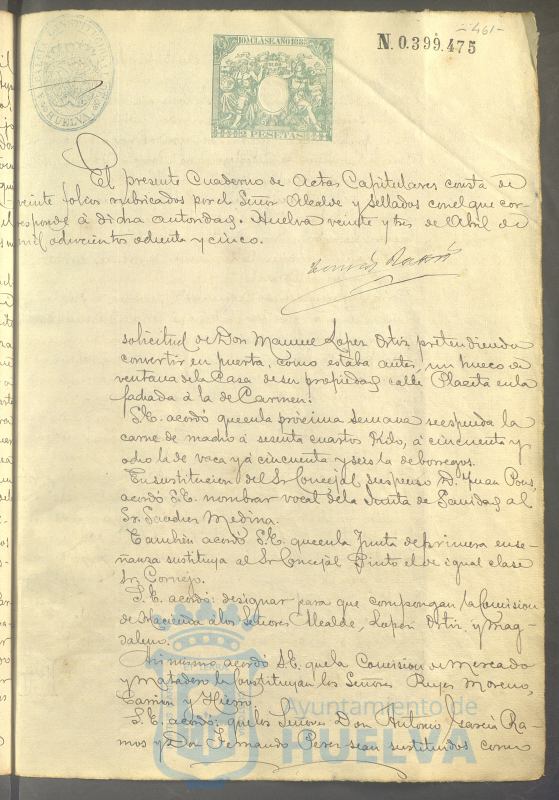 -461-
N. 0.399.475
10ª CLASE. AÑO 1885
2 PESETAS
HUELVA
El presente Cuaderno de Actas Capitulares consta de
veinte folios rubricados por el Señor Alcalde y sellados con el que cor-
responde á dicha autoridad. Huelva veinte y tres de Abril de
mil ochocientos ochenta y cinco.
solicitud de Don Manuel Lopez Ortiz pretendiendo
convertir en puerta, como estaba antes, un hueco de
ventana de la Casa de su propiedad calle Placita en la
fachada á la de Carmen.
S.E. acordó que en la próxima semana se espenda la
carne de macho á sesenta cuartos Kilo, á cincuenta y
ocho la de vaca y á cincuenta y seis la de borregos.
En sustitucion del Sr Concejal suspenso D. Juan Pous,
acordó S.E. nombrar vocal de la Junta de Sanidad al
Sr. Sanchez Medina.
Tambien acordó S.E. que en la Junta de primera ense-
ñanza sustituya al Sr Concejal Pinto el de igual clase
Sr. Cornejo.
S.E. acordó: designar para que compongan la Comision
de Hacienda á los Señores Alcalde, Lopez Ortiz y Mag-
daleno.
Asi mismo acordó S.E. que la Comision de Mercado
y Matadero la constituyan los Señores Reyes Moreno,
Carrion y Hierro.
S.E. acordó: que los Señores Don Antonio Garcia Ra-
mos y Don Fernando Perez sean sustituidos como
Ayuntamiento de
HUELVA